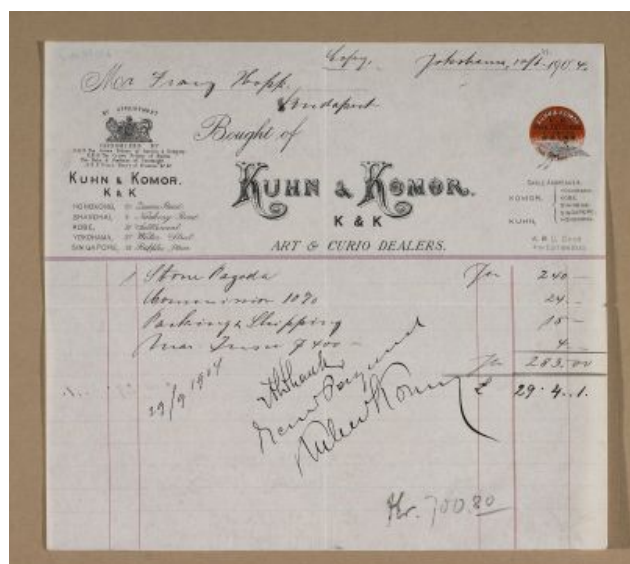 Copy. Yokohama, 1904.
Mr. Franz Hopp.
Budapest
BY APPOINTMENT
Bought of
KUHN & KOMOR.
K & K
HONGKONG, Queens Road
SHANGHAI, Nanking Road
KOBE,
YOKOHAMA, Water Street
SINGAPORE, Raffles
KUHN & KOMOR.
K & K
ART & CURIO DEALERS.
CABLE ADDRESSES
KOMOR,
KUHN,
A. B. C. Code
1 Stone Pagoda Yen 240 —
Commission 10% 24 —
Packing & Shipping 15 —
Insce ¥ 400 — 4 —
Yen 283.00
£ 29.4.1.
29/9 1904
with thanks
Kuhn & Komor
Kr. 700.80